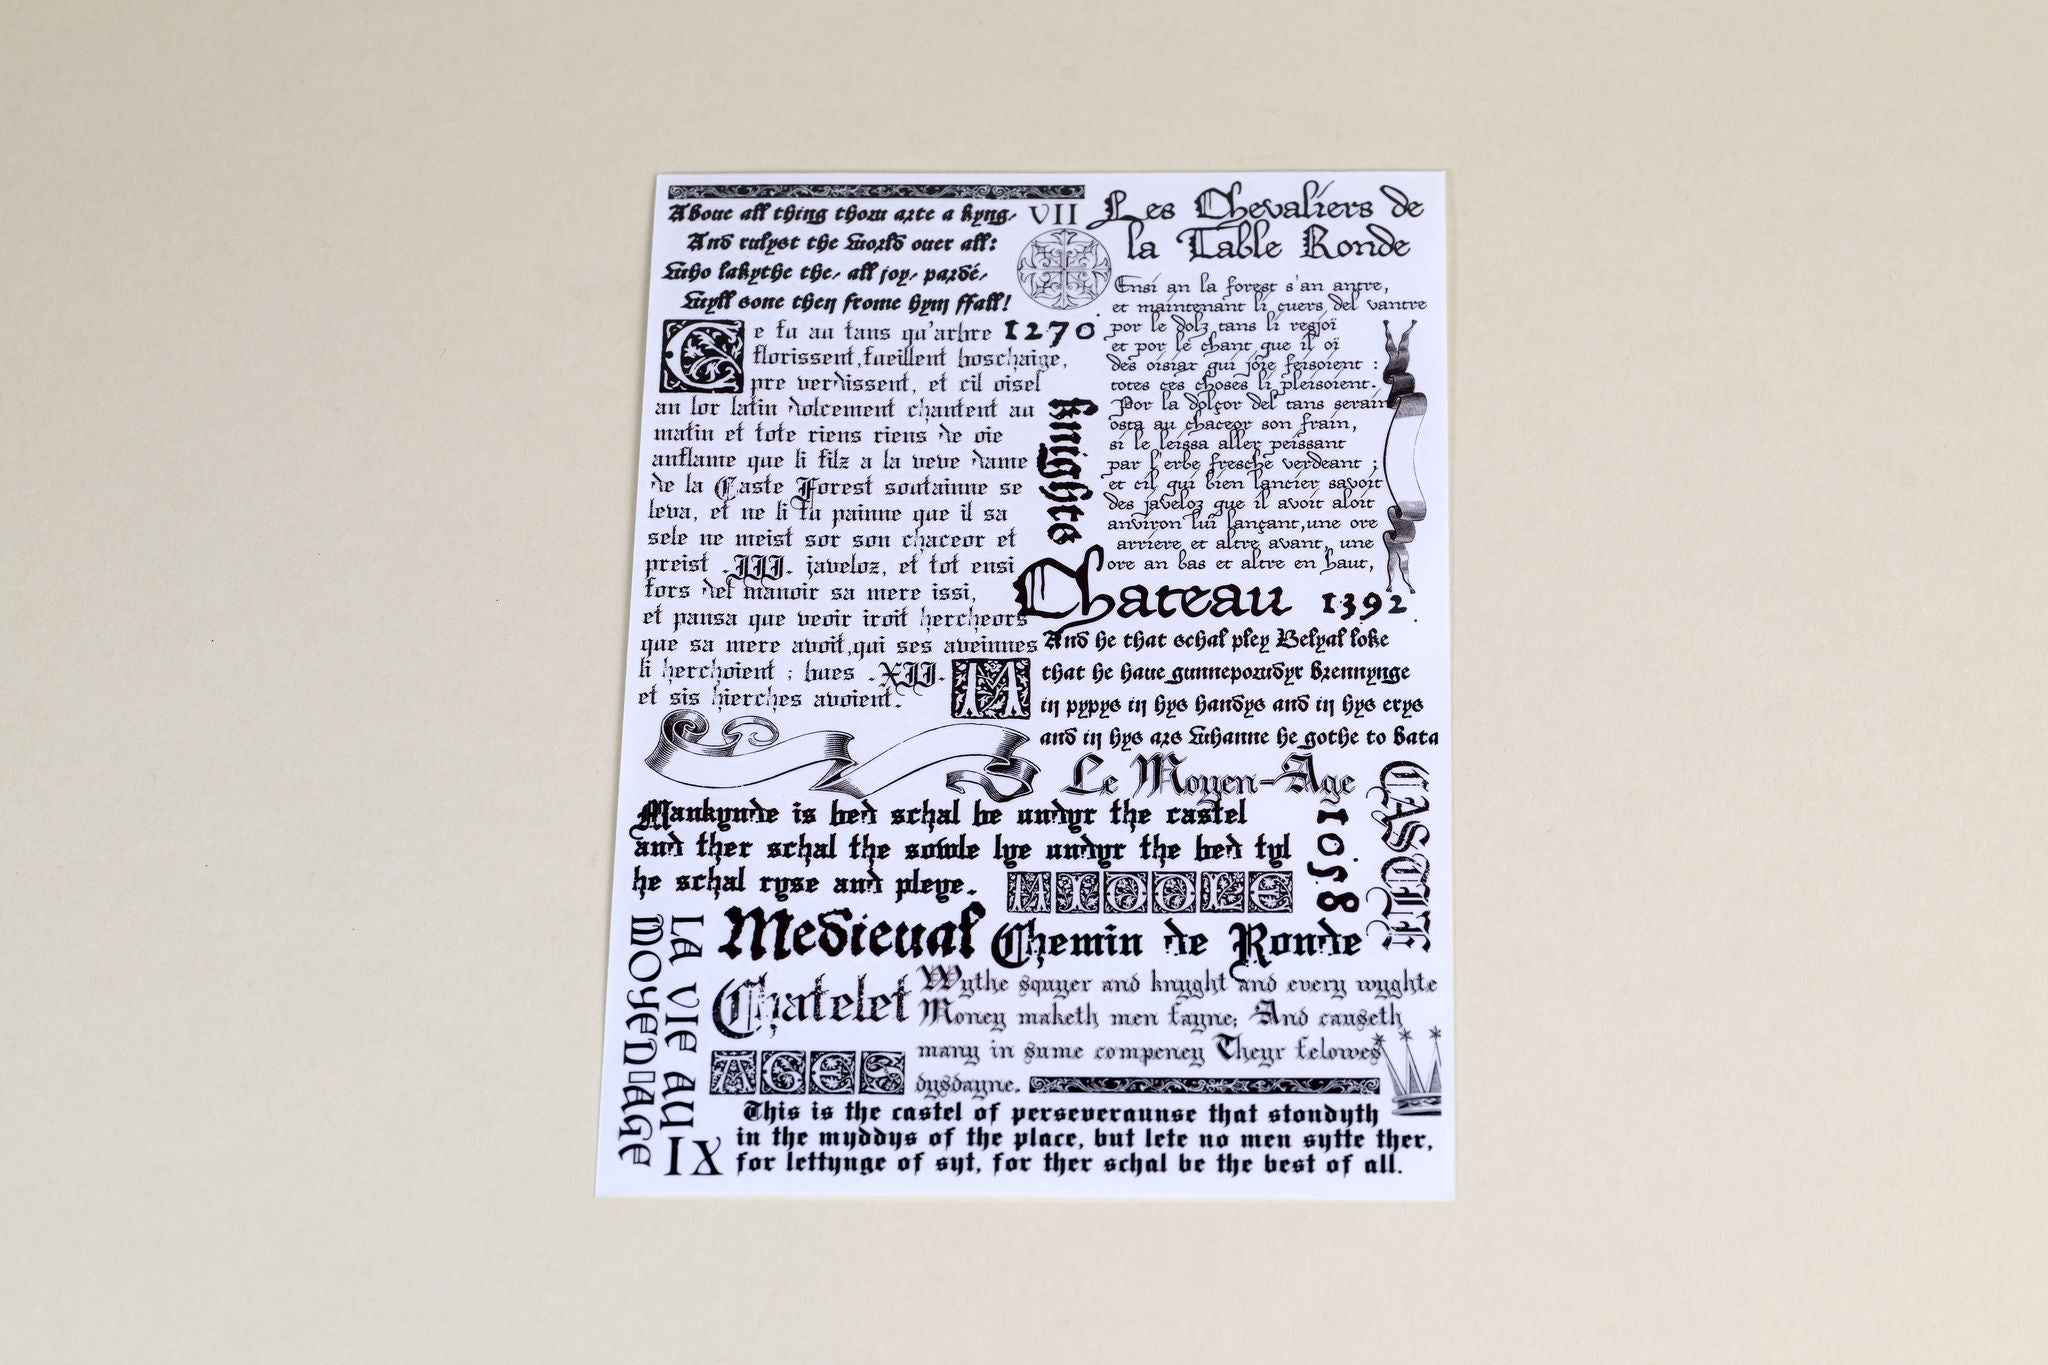 Aboue all thing thow arte a kyng,
And rulyst the world ouer all:
Who lakythe the, all joy, pardé,
Wyll sone then frome hym ffall!
VII
Les Chevaliers de
la Table Ronde
Ce fu au tans qu'arbre
florissent,fueillent boschaige,
pre verdissent, et cil oisel
an lor latin dolcement chantent au
matin et tote riens riens de oie
anflame que li filz a la veve dame
de la Gaste Forest soutainne se
leva, et ne li fu painne que il sa
sele ne meist sor son chaceor et
preist .III. javeloz, et tot ensi
fors del manoir sa mere issi,
et pansa que veoir iroit hercheors
que sa mere avoit,qui ses aveinnes
li herchoient ; bues .XII.
et sis hierches avoient.
1270
Knights
Ensi an la forest s'an antre,
et maintenant li cuers del vantre
por le dolz tans li resjoï
et por le chant que il oï
des oisiax qui joie feisoient :
totes ces choses li pleisoient.
Por la dolçor del tans serain
osta au chaceor son frain,
si le leissa aller peissant
par l'erbe fresche verdeant ;
et cil qui bien lancier savoit
des javeloz que il avoit aloit
anviron lui lançant,une ore
arriere et altre avant, une
ore an bas et altre en haut,
Chateau
1392
And he that schal pley Belyal loke
that he haue gunneporudyr brennynge
in pypys in hys handys and in hys erys
and in hys ars whanne he gothe to bata
M
Le Moyen-Age
CASTLE
1058
Mankynde is bed schal be undyr the castel
and ther schal the sowle lye undyr the bed tyl
he schal ryse and pleye.
MIDDLE
Medieval
Chemin de Ronde
LA VIE AU
MOYEN AGE
Chatelet
Wythe squyer and knyght and every wyghte
Money maketh men fayne; And causeth
many in sume compeney Theyr felowes
dysdayne.
AGES
IX
This is the castel of perseveraunse that stondyth
in the myddys of the place, but lete no men sytte ther,
for lettynge of syt, for ther schal be the best of all.